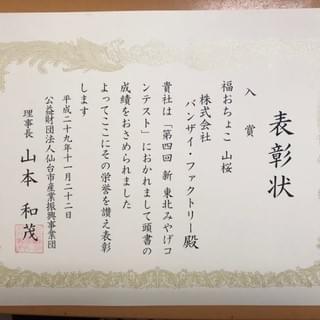 表彰状
入賞
福おちょこ 山桜
株式会社
バンザイ・ファクトリー殿
貴社は「第四回 新 東北みやげコ
ンテスト」におかれまして頭書の
成績をおさめられました
よってここにその栄誉を讃え表彰
します
平成二十九年十一月二十二日
公益財団法人仙台市産業振興事業団
理事長 山本 和茂